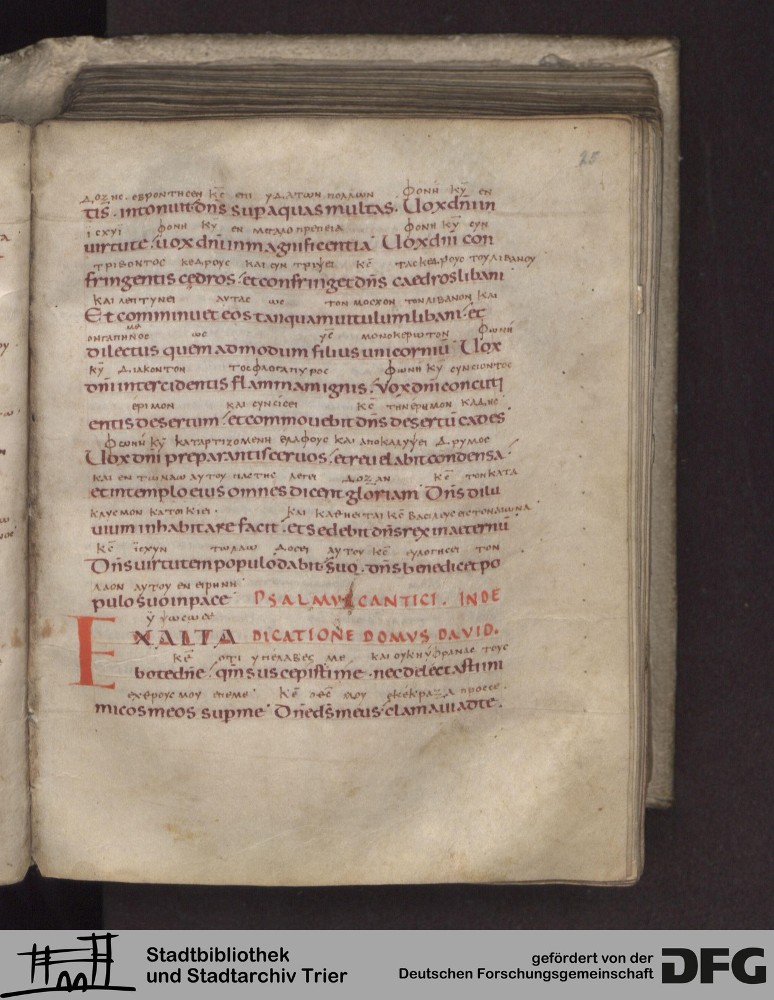 25
ΔΟΞΗC · ΕΒΡΟΝΤΗCΕΝ Κ̅C̅ ΕΠΙ ΥΔΑΤΩΝ ΠΟΛΛΩΝ ΦΟΝΗ Κ̅Υ̅ ΕΝ
tis · intonuit dn̅s sup aquas multas · Uox dn̅i in
ΙCΧΥΙ ΦΟΝΗ Κ̅Υ̅ ΕΝ ΜΕΓΑΛΟΠΡΕΠΕΙΑ ΦΟΝΗ Κ̅Υ̅ CΥΝ
uirtute · uox dn̅i in magnificentia Uox dn̅i con
ΤΡΙΒΟΝΤΟC ΚΕΔΡΟΥC ΚΑΙ CΥΝΤΡΙΨΕΙ Κ̅C̅ ΤΑC ΚΕΔΡΟΥC ΤΟΥ ΛΙΒΑΝΟΥ
fringentis cedros · et confringet dn̅s caedros libani
ΚΑΙ ΛΕΠΤΥΝΕΙ ΑΥΤΑC ΩC ΤΟΝ ΜΟCΧΟΝ ΤΟΝ ΛΙΒΑΝΟΝ ΚΑΙ
Et comminuet eos tanquam uitulum libani · et
ΩC Υ̅C̅ ΜΟΝΟΚΕΡΩΤΟΝ ΦΩΝΗ
dilectus quem admodum filius unicorniu̅ Uox
Κ̅Υ̅ ΔΙΑΚΟΝΤΟΝ ΤΟC ΦΛΟΓΑ ΠΥΡΟC ΦΩΝΗ Κ̅Υ̅ CΥΝCΙΟΝΤΟC
dn̅i intercidentis flammam ignis · Vox dn̅i concuti
ΕΡΙΜΟΝ ΚΑΙ CΥΝCΙCΕΙ Κ̅C̅ ΤΗΝ ΕΡΗΜΟΝ ΚΑΔΗC
entis desertum · et commouebit dn̅s desertu̅ cades
ΦΩΝΗ Κ̅Υ̅ ΚΑΤΑΡΤΙΖΟΜΕΝΗ ΕΛΑΦΟΥC ΚΑΙ ΑΠΟΚΑΛΥΨΕΙ ΔΡΥΜΟC
Uox dn̅i preparantis ceruos · et reuelabit condensa ·
ΚΑΙ ΕΝ ΤΩ ΝΑΩ ΑΥΤΟΥ ΠΑCΤΗC ΛΕΓΕΙ ΔΟΞΑΝ Κ̅C̅ ΤΟΝ ΚΑΤΑ
et in templo eius omnes dicent gloriam Dn̅s dilu
ΚΛΥCΜΟΝ ΚΑΤΟΙΚΙΕΙ · ΚΑΙ ΚΑΘΗCΙΤΑΙ Κ̅C̅ ΒΑCΙΛΕΥC ΕΙC ΤΟΝ ΑΙΩΝΑ
uium inhabitare facit · et sedebit dn̅s rex in aeternu̅
Κ̅C̅ ΙCΧΥΝ ΤΩ ΛΑΩ ΔΟCΕΙ ΑΥΤΟΥ Κ̅C̅ ΕΥΛΟΓΗCΕΙ ΤΟΝ
Dn̅s uirtutem populo dabit suo · dn̅s benedicet po
ΛΑΟΝ ΑΥΤΟΥ ΕΝ ΕΙΡΗΝΗ
pulo suo in pace PSALMVS CANTICI · INDE
ΥΨΩCΩ CΕ
EXALTA DICATIONE DOMVS DAVID ·
Κ̅Ε̅ ΟΤΙ ΥΠΕΛΑΒΕC ΜΕ ΚΑΙ ΟΥΚ ΗΥΦΡΑΝΑC ΤΟΥC
bo te dn̅e · qm̅ suscepisti me · nec delectasti ini
ΕΧΘΡΟΥC ΜΟΥ ΕΠ ΕΜΕ Κ̅Ε̅ Ο Θ̅C̅ ΜΟΥ ΕΚΕΚΡΑΞΑ ΠΡΟC CΕ ·
micos meos sup me Dn̅e ds̅ meus · clamaui ad te ·
Stadtbibliothek
und Stadtarchiv Trier
gefördert von der
Deutschen Forschungsgemeinschaft
DFG